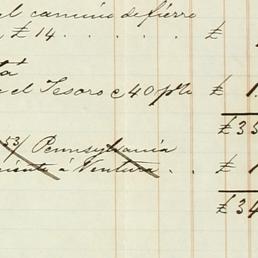 el camino de fierro
£ 14 . . . . . . £
el Tesoro c 40 p% £ 1
£ 35
53/ Pennsylvania
á Ventura . . £ 1
£ 34